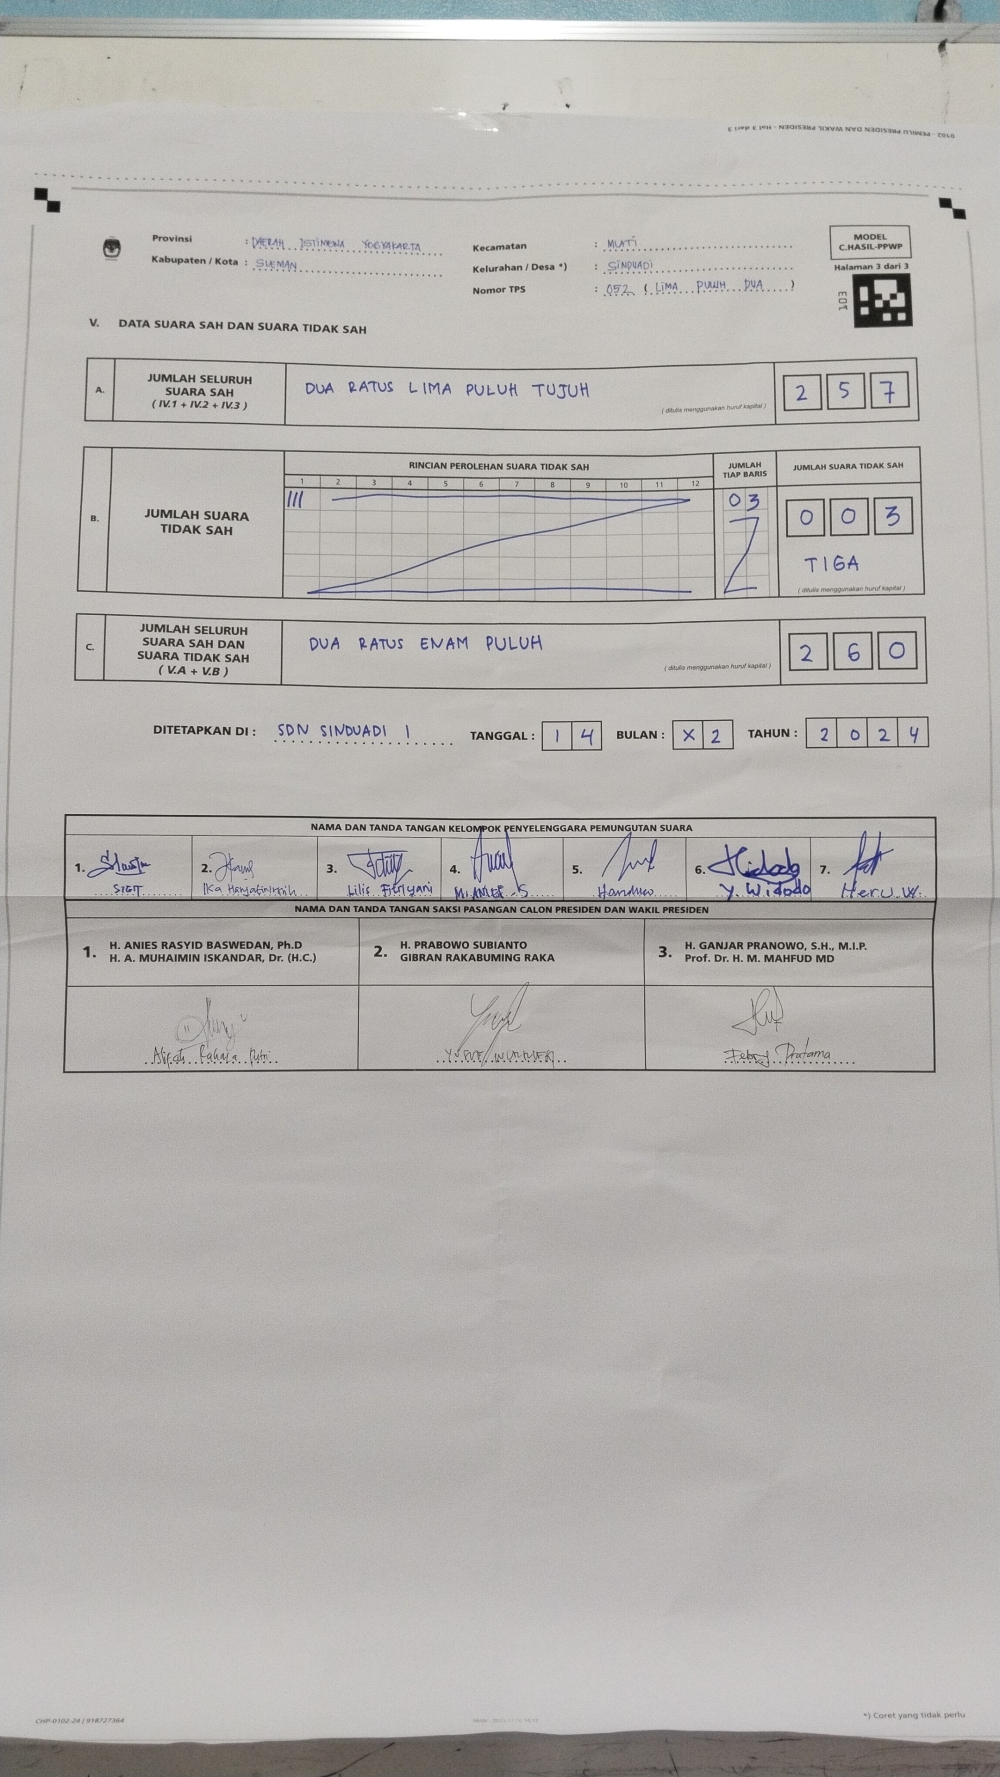 0102 - PEMILU PRESIDEN DAN WAKIL PRESIDEN - Hal 3 dari 3
Provinsi : DAERAH ISTIMEWA YOGYAKARTA
Kabupaten / Kota : SLEMAN
Kecamatan : MLATI
Kelurahan / Desa *) : SINDUADI
Nomor TPS : 052 ( LIMA PULUH DUA )
MODEL
C.HASIL-PPWP
Halaman 3 dari 3
V. DATA SUARA SAH DAN SUARA TIDAK SAH
A. JUMLAH SELURUH
SUARA SAH
( IV.1 + IV.2 + IV.3 )
DUA RATUS LIMA PULUH TUJUH
( ditulis menggunakan huruf kapital )
2 5 7
B. JUMLAH SUARA
TIDAK SAH
RINCIAN PEROLEHAN SUARA TIDAK SAH
1 2 3 4 5 6 7 8 9 10 11 12
III
JUMLAH
TIAP BARIS
03
JUMLAH SUARA TIDAK SAH
0 0 3
TIGA
( ditulis menggunakan huruf kapital )
C. JUMLAH SELURUH
SUARA SAH DAN
SUARA TIDAK SAH
( V.A + V.B )
DUA RATUS ENAM PULUH
( ditulis menggunakan huruf kapital )
2 6 0
DITETAPKAN DI : SDN SINDUADI 1 TANGGAL : 1 4 BULAN : X 2 TAHUN : 2 0 2 4
NAMA DAN TANDA TANGAN KELOMPOK PENYELENGGARA PEMUNGUTAN SUARA
1. 2. 3. 4. 5. 6. 7.
SIGIT Ika Lilis Fitriyani Y. Widodo Heru.W.
NAMA DAN TANDA TANGAN SAKSI PASANGAN CALON PRESIDEN DAN WAKIL PRESIDEN
1. H. ANIES RASYID BASWEDAN, Ph.D
H. A. MUHAIMIN ISKANDAR, Dr. (H.C.)
2. H. PRABOWO SUBIANTO
GIBRAN RAKABUMING RAKA
3. H. GANJAR PRANOWO, S.H., M.I.P.
Prof. Dr. H. M. MAHFUD MD
Putri
Febry Pratama
CHP-0102-24 / 918727364
*) Coret yang tidak perlu